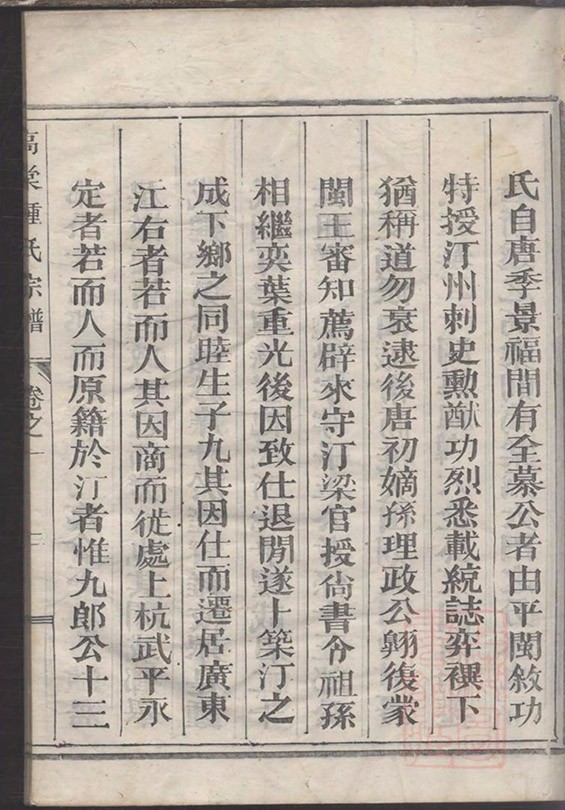 氏自唐季景福間有全慕公者由平閩敘功
特授汀州刺史勳猷功烈悉載統誌弈禩下
猶稱道勿衰逮後唐初嫡孫理政公翱復蒙
閩王審知薦辟來守汀梁官授尙書令祖孫
相繼奕葉重光後因致仕退閒遂卜築汀之
成下鄉之同睦生子九其因仕而遷居廣東
江右者若而人其因商而從處上杭武平永
定者若而人而原籍於汀者惟九郎公十三
高梁鍾氏宗譜 卷之一